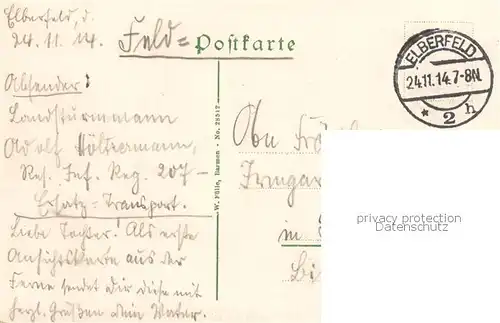 Elberfeld, d.
24.11.14.
Feld=
Postkarte
ELBERFELD
24.11.14.7-8N.
* 2 h
Absender:
Landsturmmann
Adolf Höltermann,
Res. Inf. Reg. 207-
Ersatz-Transport.
Liebe Tochter! Als erste
Ansichtskarte aus der
Ferne sendet dir diese mit
herzl. Grüßen dein Vater.
W. Fülle, Barmen - No. 28517
An
Irmgar
in
privacy protection
AnsichtskartenVersand.com